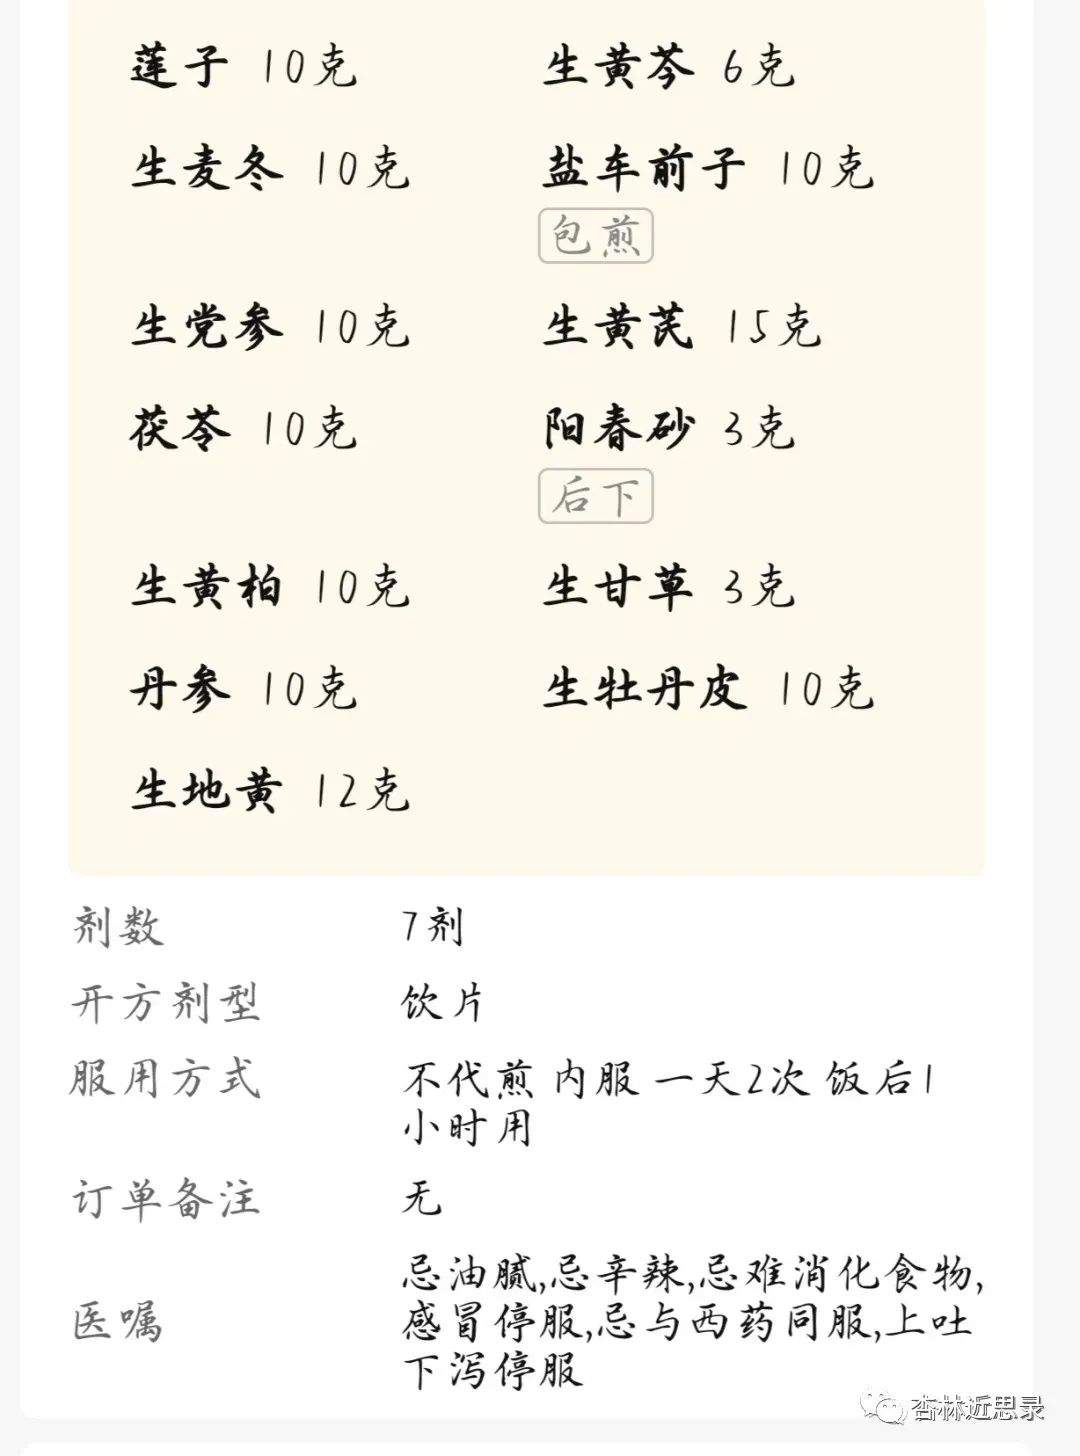 莲子 10克 生黄芩 6克
生麦冬 10克 盐车前子 10克
包煎
生党参 10克 生黄芪 15克
茯苓 10克 阳春砂 3克
后下
生黄柏 10克 生甘草 3克
丹参 10克 生牡丹皮 10克
生地黄 12克
剂数 7剂
开方剂型 饮片
服用方式 不代煎 内服 一天2次 饭后1
小时用
订单备注 无
忌油腻,忌辛辣,忌难消化食物,
医嘱 感冒停服,忌与西药同服,上吐
下泻停服
杏林近思录